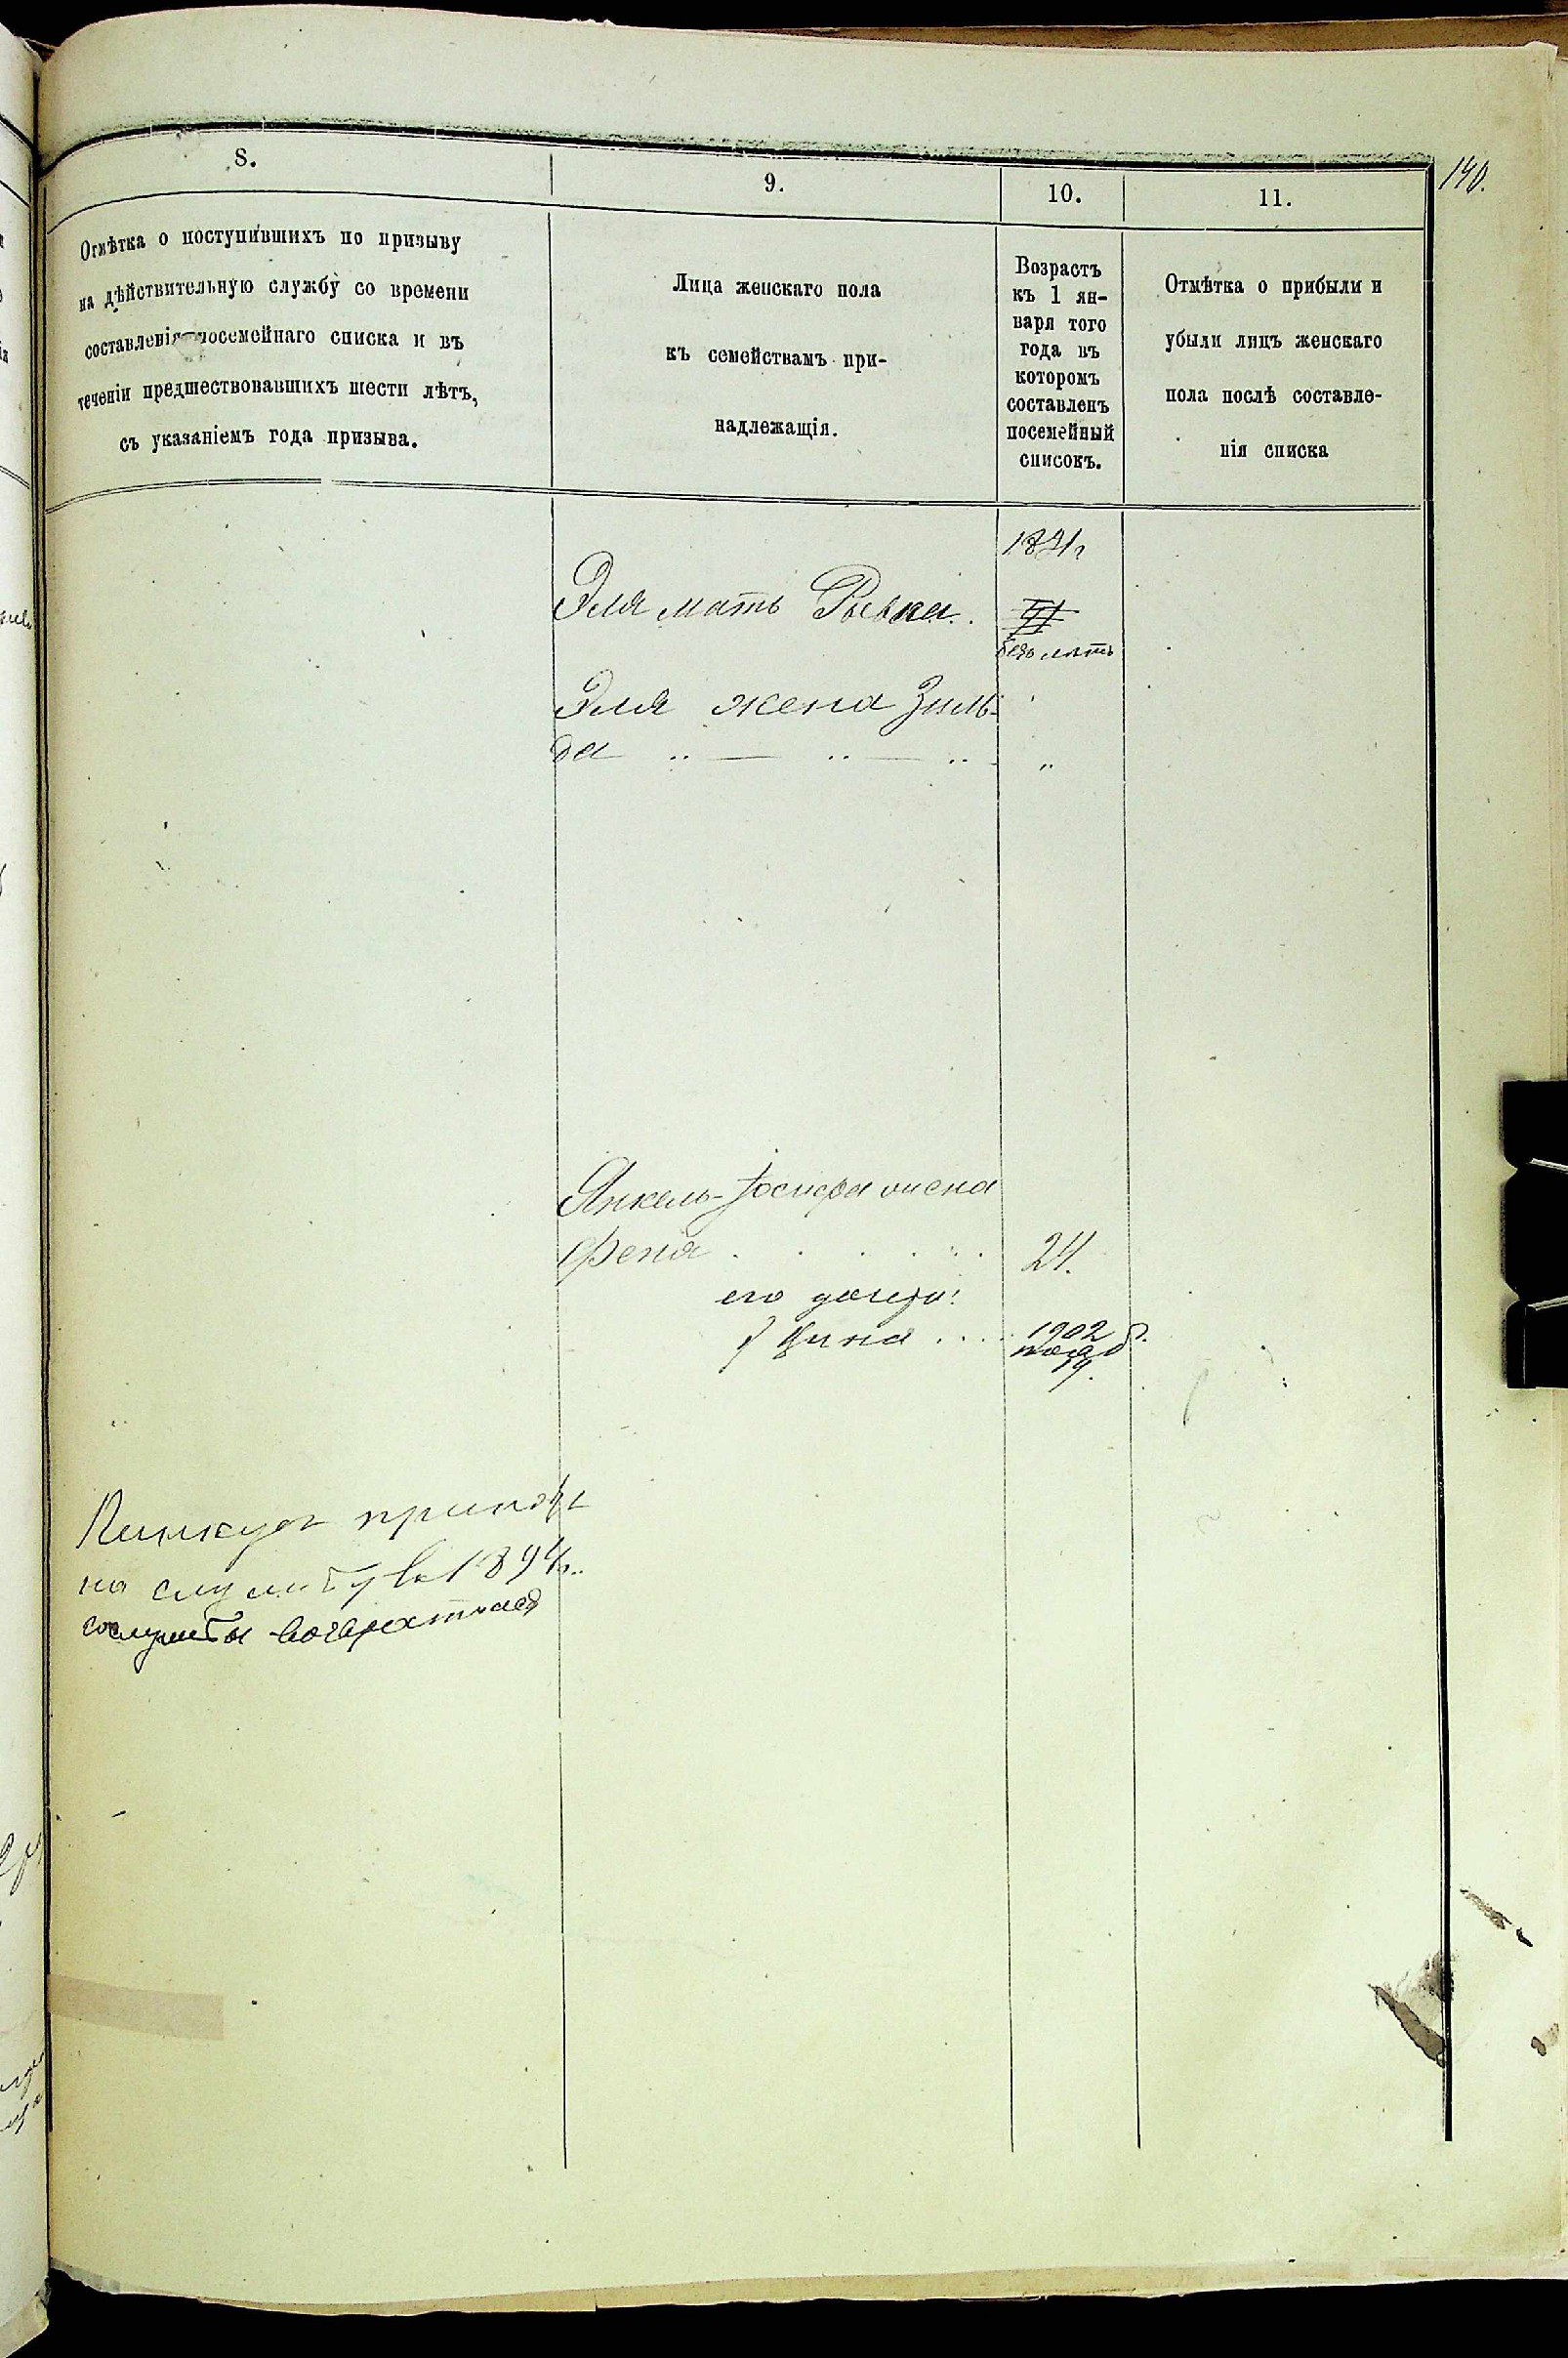 140.
8.
9.
10.
11.
Отмѣтка о поступившихъ по призыву
на дѣйствительную службу со времени
составленія посемейнаго списка и въ
теченіи предшествовавшихъ шести лѣтъ,
съ указаніемъ года призыва.
Лица женскаго пола
къ семействамъ при-
надлежащія.
Возрастъ
къ 1 ян-
варя того
года въ
которомъ
составленъ
посемейный
списокъ.
Отмѣтка о прибыли и
убыли лицъ женскаго
пола послѣ составле-
нія списка
Эля мать Рывка.
Эля жена Зиль-
да
Янкель-Іосифа жена
Феня 24.
его дочери:
Цина 1902
Пинкусъ принятъ
на службу въ 1894г.
со службы возвратился